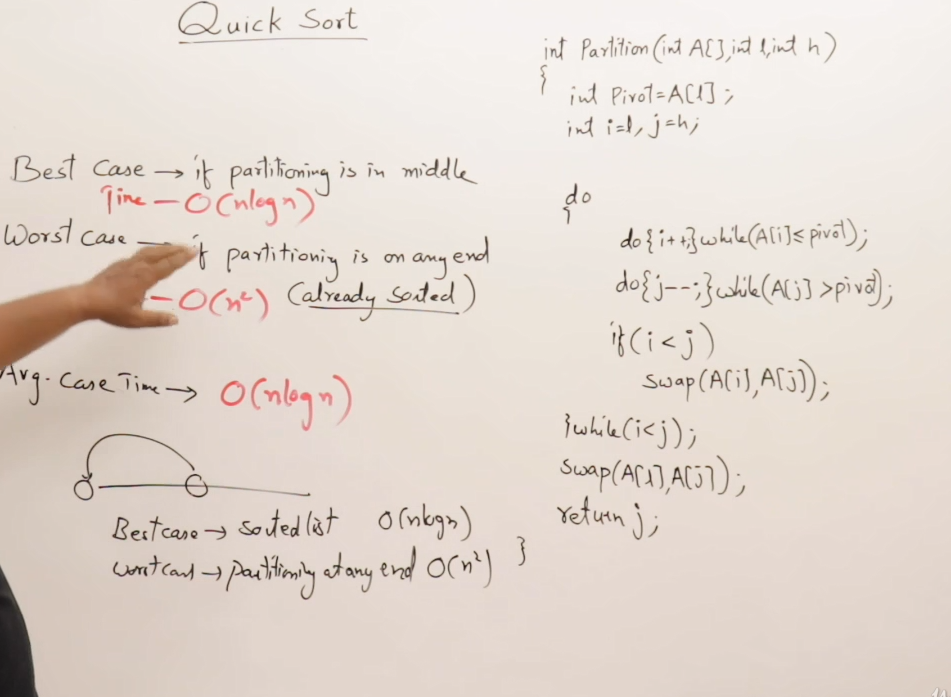 Quick Sort
Best Case → if partitioning is in middle
Time – O(nlogn)
Worst Case – if partitioning is on any end
– O(n²) (already sorted)
Avg. Case Time → O(nlogn)
Best case → sorted list O(nlogn)
worst case → partitioning at any end O(n²)
int Partition(int A[],int l,int h)
{
int Pivot=A[l];
int i=l, j=h;
do
{
do{i++;}while(A[i]≤pivot);
do{j--;}while(A[j]>pivot);
if(i<j)
swap(A[i],A[j]);
}while(i<j);
swap(A[l],A[j]);
return j;
}